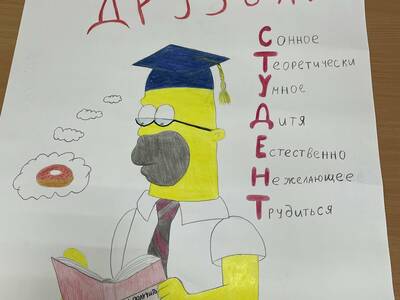 ДРУЗЬЯ!
Сонное
Теоретически
Умное
Дитя
Естественно
Не желающее
Трудиться